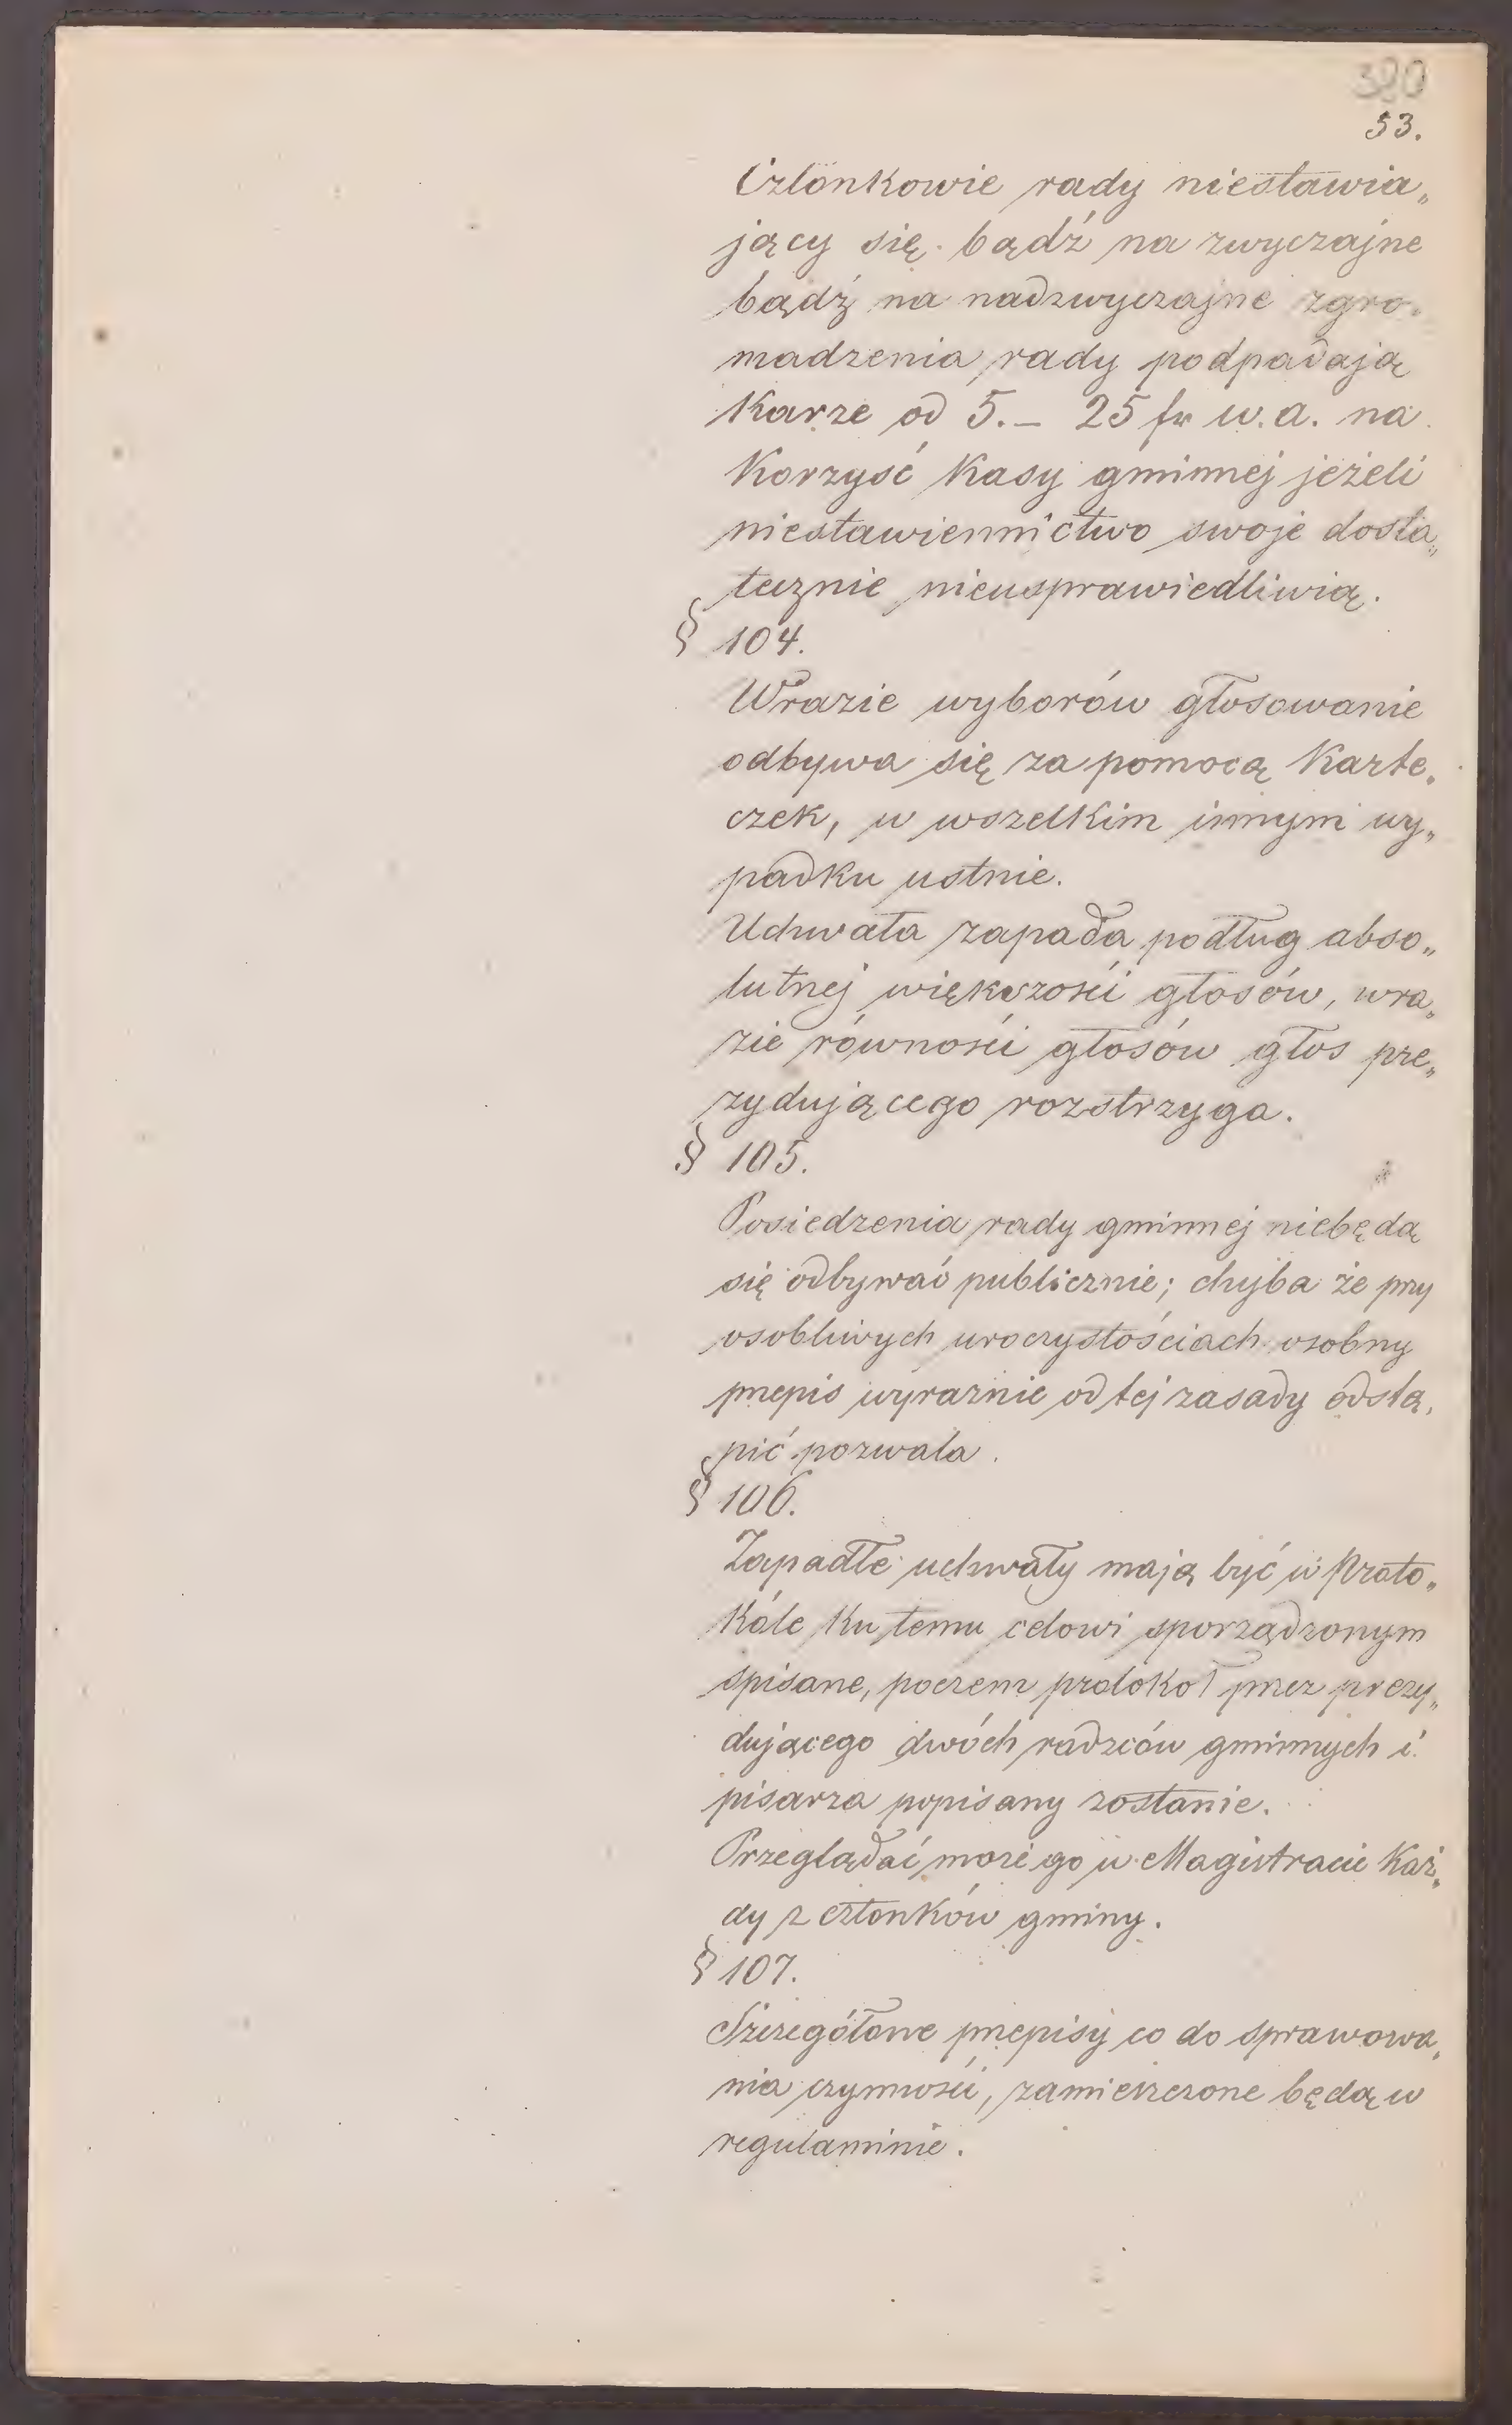 320
53.
Członkowie rady niestawia„
jący się bądź na zwyczajne
bądź na nadzwyczajne zgro„
madzenia rady podpadają
karze od 5.– 25 fr w. a. na
korzyść kasy gminnej jeżeli
niestawiennictwo swoje dosta„
tecznie nieusprawiedliwią.
§ 104.
Wrazie wyborów głosowanie
odbywa się za pomocą karte„
czek, w wszelkim innym wy„
padku ustnie.
Uchwała zapada podług abso„
lutnej większości głosów, wra„
zie równości głosów głos pre„
zydującego rozstrzyga.
§ 105.
Posiedzenia rady gminnej niebędą
się odbywać publicznie; chyba że przy
osobliwych uroczystościach osobny
przepis wyraźnie od tej zasady odstą„
pić pozwala.
§ 106.
Zapadłe uchwały mają być w Proto„
kóle ku temu celowi sporządzonym
spisane, poczem protokoł przez prezy„
dującego dwóch radzców gminnych i
pisarza popisany zostanie.
Przeglądać może go w Magistracie każ„
dy z członków gminy.
§ 107.
Szczegółowe przepisy co do sprawowa„
nia czynności, zamieszczone będą w
regulaminie.